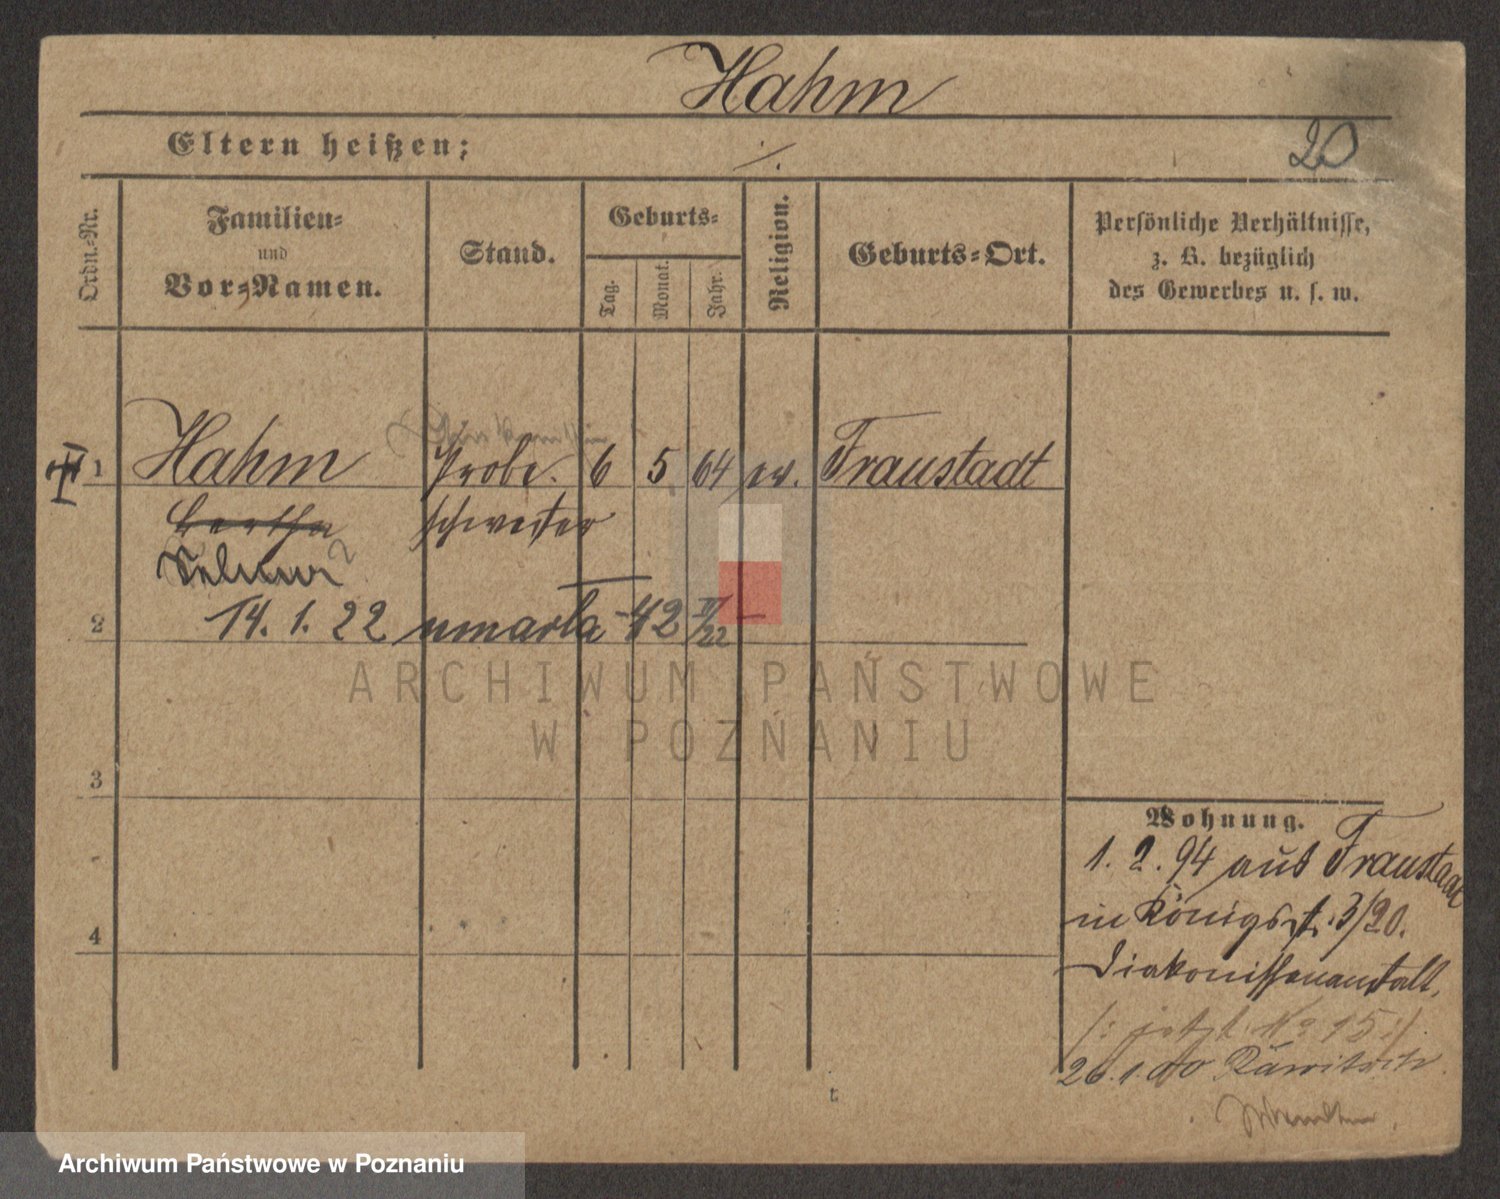 Hahm
Eltern heißen; ./.
20
Ordn.-Nr.
Familien-
und
Vor-Namen.
Stand.
Geburts-
Tag. Monat. Jahr.
Religion.
Geburts-Ort.
Persönliche Verhältnisse,
z. B. bezüglich
des Gewerbes u. s. w.
1 Hahm Probe- 6 5 64 ev. Fraustadt
Bertha schwester
2 14. 1. 22 umarła 42 IV/22
ARCHIWUM PAŃSTWOWE
W POZNANIU
3
Wohnung.
1. 2. 94 aus Fraustadt
in Königsstr. 3/20.
4
Diakonissenanstalt,
/: jetzt No 15 :/
26.1.00 Rawitsch
Archiwum Państwowe w Poznaniu